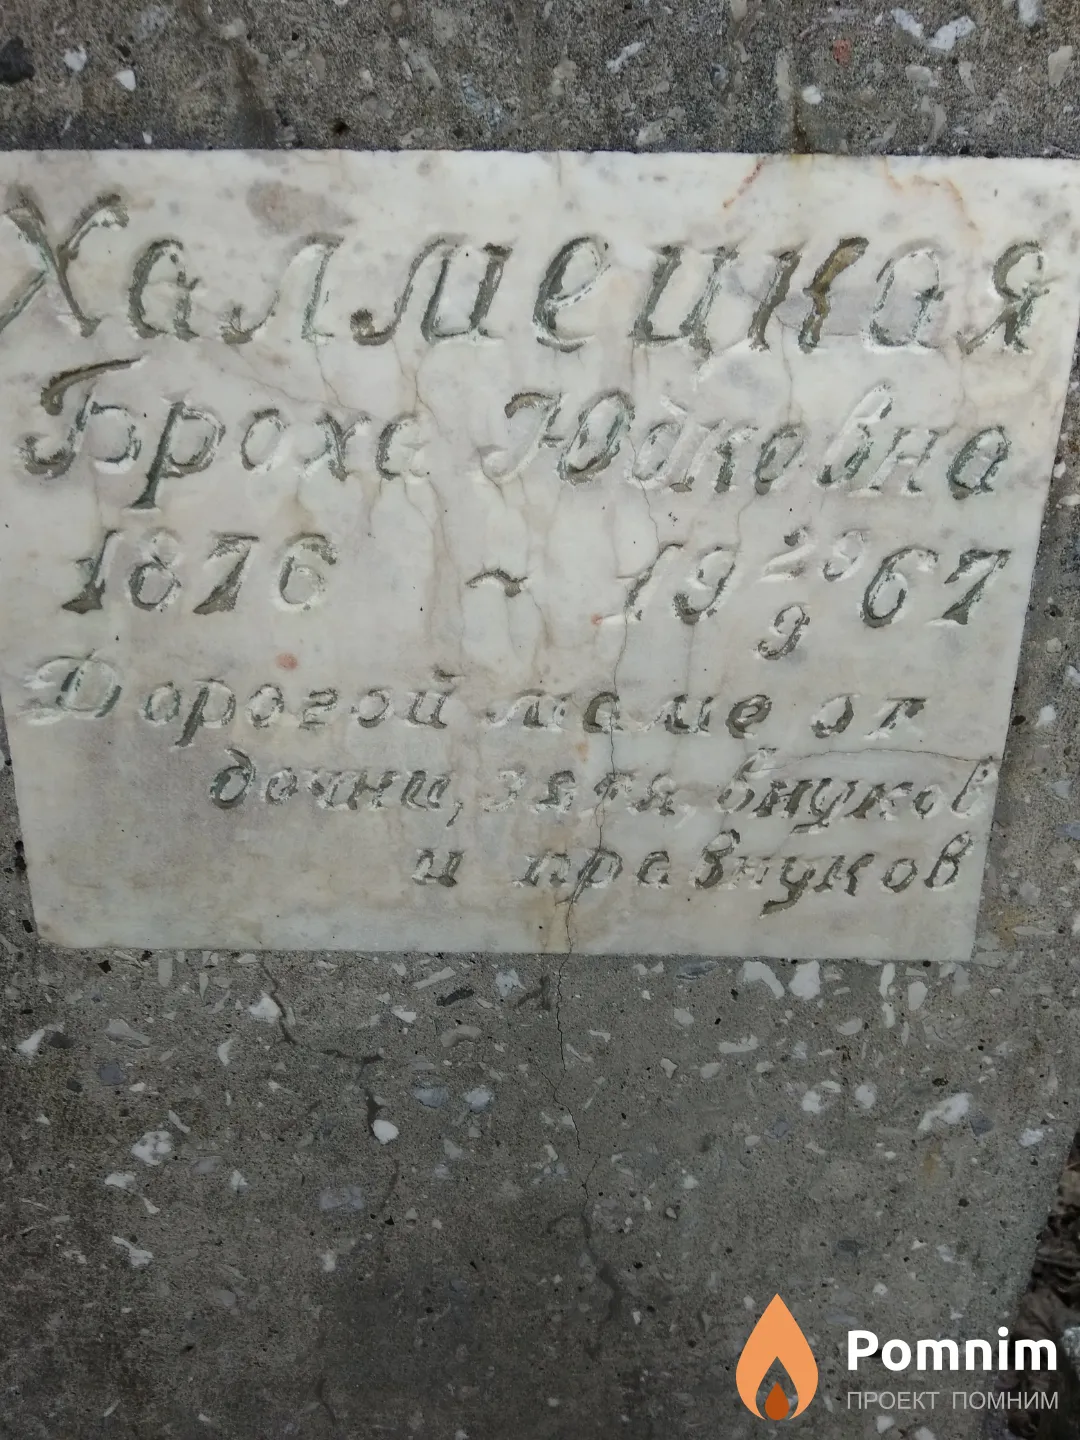 Халмецкая
Броха Юдковна
1876 ~ 19 29/9 67
Дорогой маме от
дочки, зятя, внуков
и правнуков
Pomnim
ПРОЕКТ ПОМНИМ